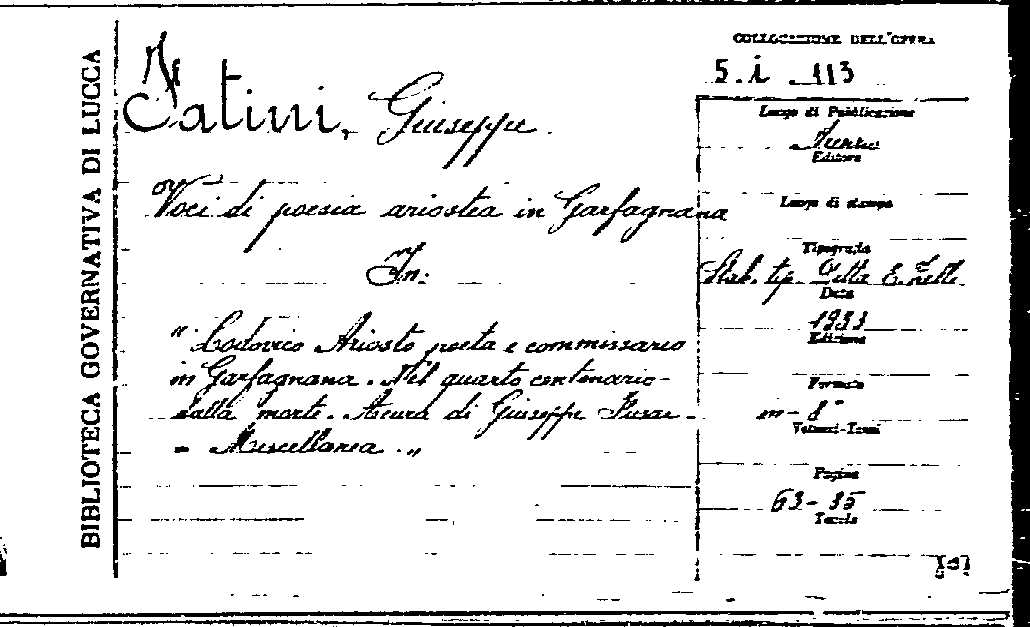 BIBLIOTECA GOVERNATIVA DI LUCCA
Fatini, Giuseppe.
Voci di poesia ariostea in Garfagnana
In:
" Lodovico Ariosto poeta e commissario
in Garfagnana. Nel quarto centenario
dalla morte. A cura di Giuseppe
- Miscellanea. "
COLLOCAZIONE DELL'OPERA
5. i. 113
Luogo di Pubblicazione
Editore
Luogo di stampa
Tipografia
Stab. tip. Ditta E.
Data
1933
Edizione
Formato
in-8°
Volumi-Tomi
Pagine
63-85
Tavole